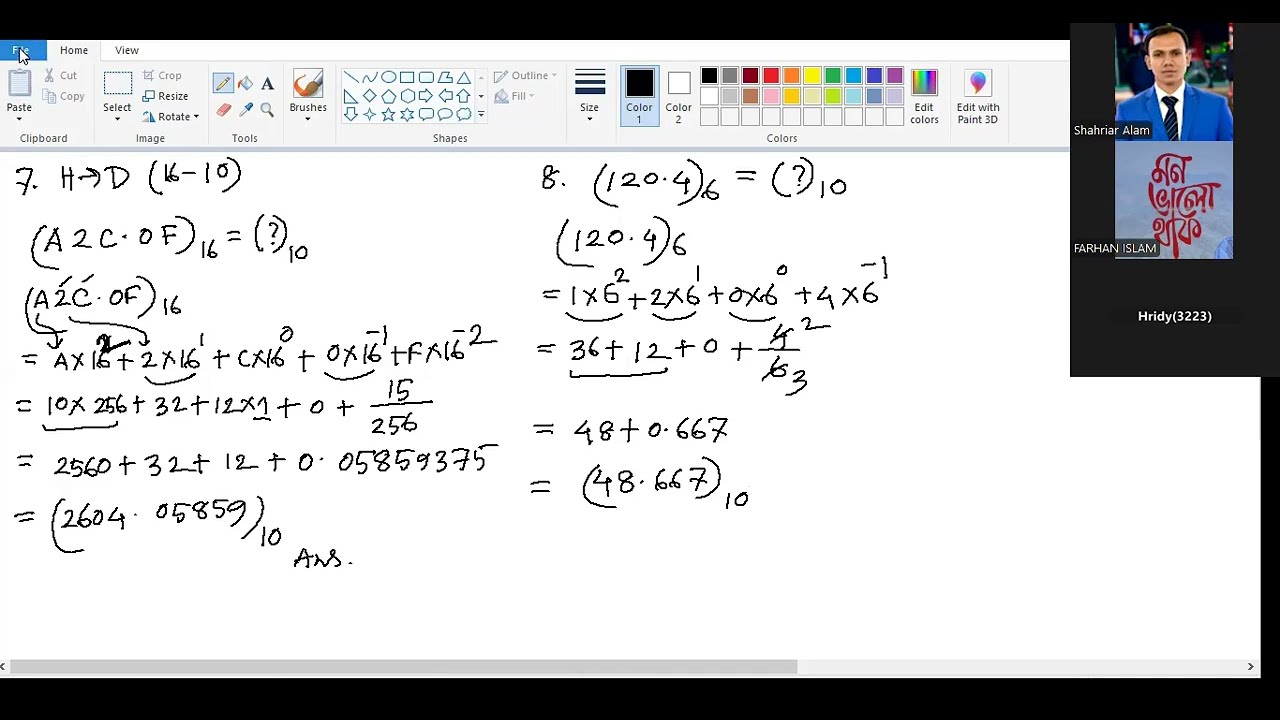 File Home View
Paste Cut Copy Clipboard
Select Crop Resize Rotate Image
Tools
Brushes
Outline Fill Shapes
Size
Color 1 Color 2 Edit colors Colors
Edit with Paint 3D
Shahriar Alam
মন
ভালো
থাক
FARHAN ISLAM
Hridy(3223)
7. H→D (16-10)
(A2C.0F)16 = (?)10
(A2C.0F)16
= A×16² + 2×16¹ + C×16⁰ + 0×16⁻¹ + F×16⁻²
= 10×256 + 32 + 12×1 + 0 + 15/256
= 2560 + 32 + 12 + 0.05859375
= (2604.05859)10
Ans.
8. (120.4)6 = (?)10
(120.4)6
= 1×6² + 2×6¹ + 0×6⁰ + 4×6⁻¹
= 36 + 12 + 0 + 4 2/6 3
= 48 + 0.667
= (48.667)10